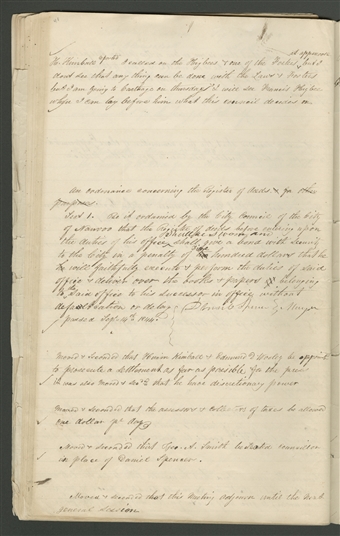 it appears
Mr Kimball spoke I called on the Higbees & one of the Fosters but I
dont see that any thing can be done with the Laws & Fosters
but I am going to Carthage on Thursday & will see Francis Higbee
when I can lay before him what this council decides on
An ordinance concerning the Register of deeds & for other
purposes.
Sect 1. Be it ordained by the City Council of the City
of Nauvoo that the Register of deeds before entering upon
the duties of his office shall be sworn and
shall give a bond with security
to the City in a penalty of hundred dollars that he
will faithfully execute & perform the duties of said
office & deliver over the books & papers belonging
to said office to his successor in office without
defalcation or delay Daniel Spencer Mayor
passed Sept 14th 1844.
Moved & seconded that Hiram Kimball & Edmund D Worley be appointed
to prosecute a settlement as far as possible for the
it was also moved & sec'd that he have discretionary power
Moved & seconded that the assessors & collectors of taxes be allowed
one dollar pr day
Moved & seconded that Geo. A. Smith be
in place of Daniel Spencer.
Moved & seconded that this meeting adjourn until the next
general session